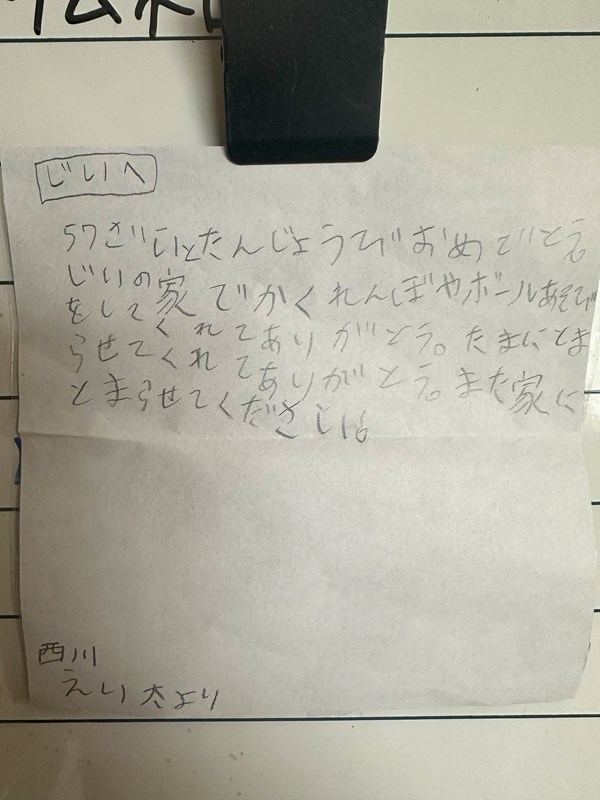 じいへ
57ざいとたんじょうびおめでとう。
じいの家でかくれんぼやボールあそび
をしてくれてありがとう。たまにとま
らせてくれてありがとう。また家に
とまらせてください。
西川
えい太より